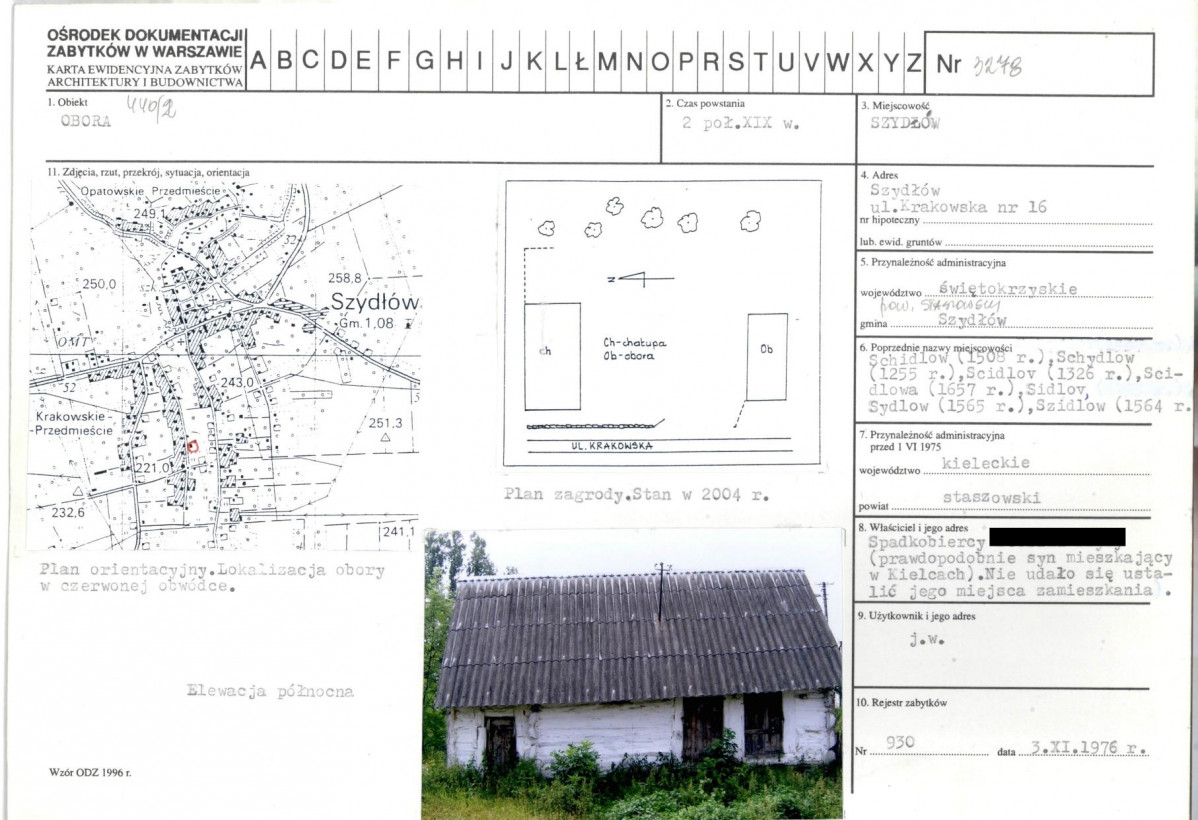 OŚRODEK DOKUMENTACJI
ZABYTKÓW W WARSZAWIE
KARTA EWIDENCYJNA ZABYTKÓW
ARCHITEKTURY I BUDOWNICTWA
A B C D E F G H I J K L Ł M N O P R S T U V W X Y Z
Nr 3278
1. Obiekt 440/2
OBORA
2. Czas powstania
2 poł.XIX w.
3. Miejscowość
SZYDŁÓW
11. Zdjęcia, rzut, przekrój, sytuacja, orientacja
Opatowskie Przedmieście
249,1
52
258,8
250,0
Szydłów
Gm. 1,08
OMT
52
243,0
Krakowskie-
-Przedmieście
251,3
221,0
232,6
241,1
Plan orientacyjny.Lokalizacja obory
w czerwonej obwódce.
N
Ch
Ch-chałupa
Ob-obora
Ob
UL. KRAKOWSKA
Plan zagrody.Stan w 2004 r.
Elewacja północna
Wzór ODZ 1996 r.
4. Adres
Szydłów
ul.Krakowska nr 16
nr hipoteczny
lub. ewid. gruntów
5. Przynależność administracyjna
województwo świętokrzyskie
pow. staszowski
gmina Szydłów
6. Poprzednie nazwy miejscowości
Schidlow (1508 r.),Schydlow
(1255 r.),Scidlov (1326 r.),Sci-
dlowa (1657 r.),Sidlov,
Sydlow (1565 r.),Szidlow (1564 r.
7. Przynależność administracyjna
przed 1 VI 1975
województwo kieleckie
powiat staszowski
8. Właściciel i jego adres
Spadkobiercy
(prawdopodobnie syn mieszkający
w Kielcach).Nie udało się usta-
lić jego miejsca zamieszkania.
9. Użytkownik i jego adres
j.w.
10. Rejestr zabytków
Nr 930 data 3.XI.1976 r.